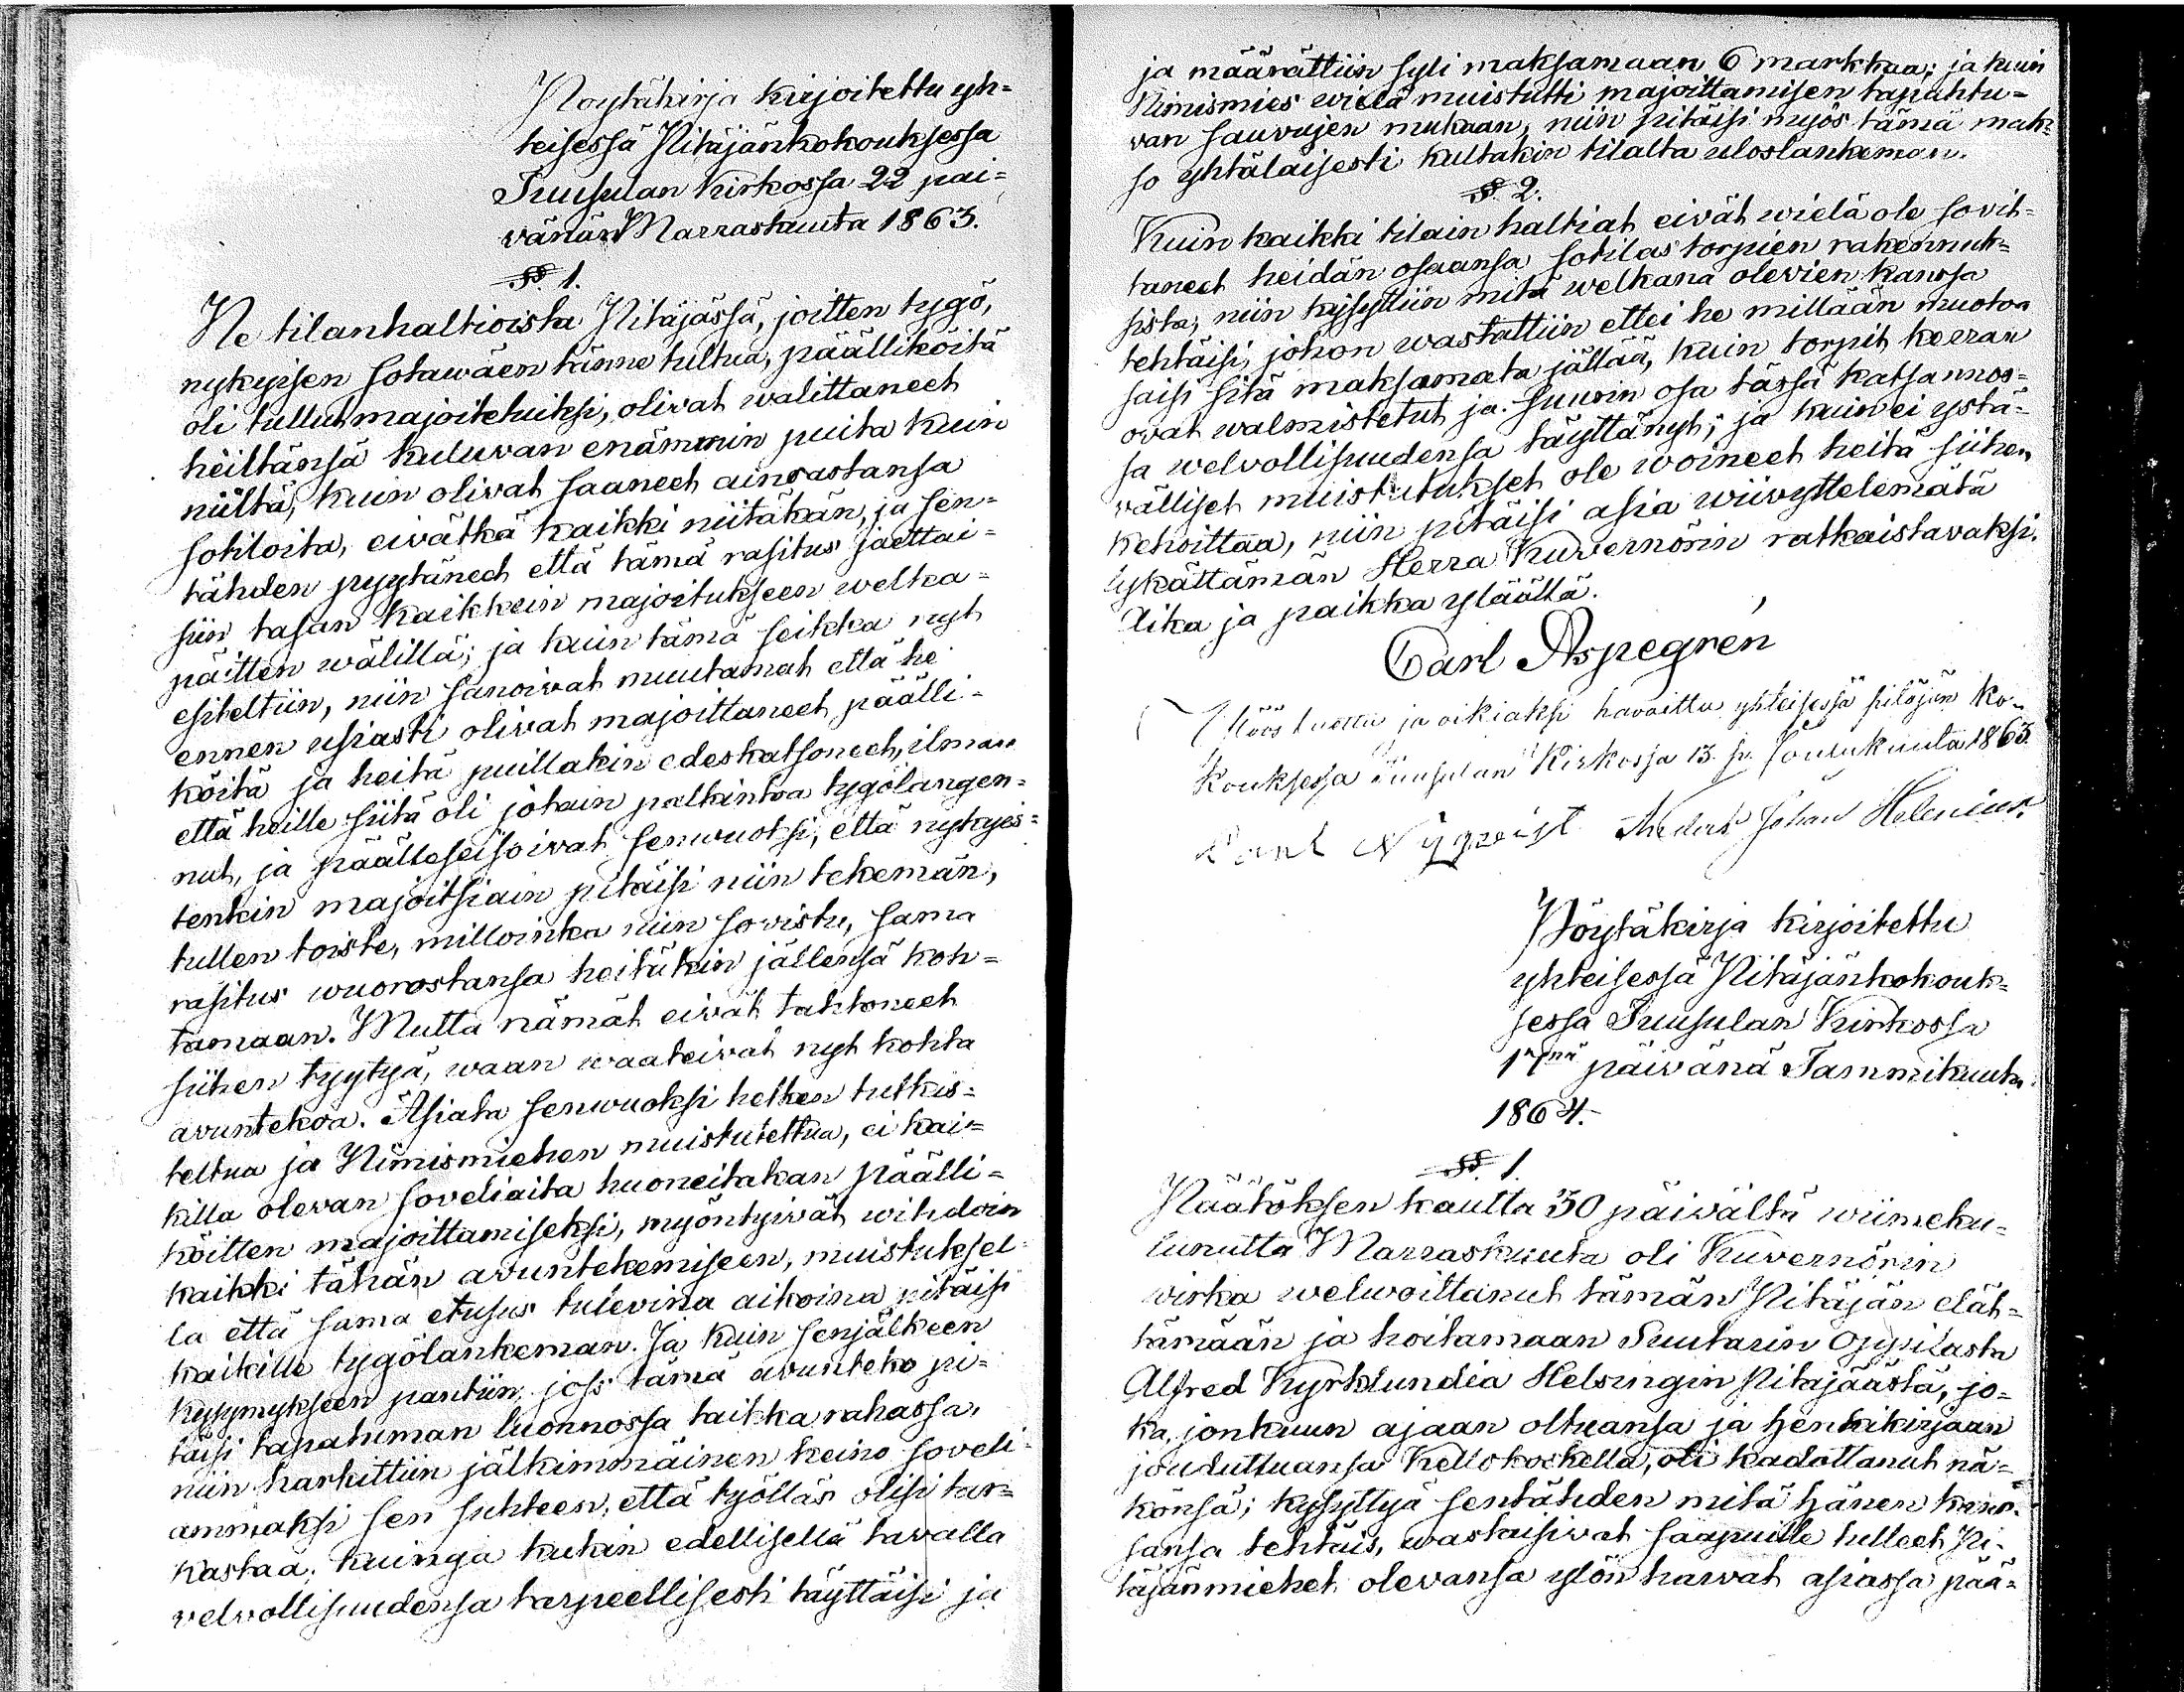 Pöytäkirja kirjoitettu yh=
teisessä Pitäjänkokouksessa
Tuusulan Kirkossa 22 päi=
vänä Marraskuuta 1863.
§§ 1.
Ne tilanhaltioista Pitäjässä, joitten tygö,
nykyisen sotawäen tänne tultua, päälliköitä
oli tullut majoitetuiksi, olivat walittaneet
heiltänsä kuluvan enämmin puita kuin
niiltä, kuin olivat saaneet ainoastansa
sotiloita, eivätkä kaikki niitäkän, ja sen=
tähden pyytäneet että tämä rasitus jaettai=
siin tasan kaikkein majoitukseen welka=
päitten wälillä; ja kuin tämä seikka nyt
esiteltiin, niin sanoivat muutamat että he
ennen usiasti olivat majoittaneet päälli=
köitä ja heitä puillakin edeskatsoneet, ilman
että heille siitä oli jotain palkintoa tygölangen=
nut, ja päälleseisoivat senwuoksi, että nykyis=
tenkin majoitsiain pitäisi niin tekemän,
tullen toiste, milloinka niin sovistu, sama
rasitus wuorostansa heitäkin jällensä koh=
tamaan. Mutta nämät eivät tahtoneet
siihen tyytyä, waan waateivat nyt kohta
avuntekoa. Asiata senwuoksi hetken tutkis=
teltua ja Nimismiehen muistutettua, ei kai=
killa olevan soveliaita huoneitakan päälli=
köitten majoittamiseksi, myöntyivät wihdoin
kaikki tähän avuntekemiseen, muistuksel=
la että sama etusus tulevina aikoina pitäisi
kaikille tygölankeman. Ja kuin senjälkeen
kysymykseen pantiin, joss tämä avunteko pi=
täisi tapahtuman luonnossa taikka rahassa,
niin harkittiin jälkimmäinen keino soveli=
ammaksi sen suhteen, että työlläs olisi tar=
kastaa, kuinga kukin edellisellä tavalla
velvollisuudensa tarpeellisesti täyttäisi ja
ja määrättiin syli maksamaan 6 markkaa; ja kuin
Nimismies wielä muistutti majoittamisen tapahtu=
van sauvujen mukaan, niin pitäisi myös tämä mak=
so yhtälaisesti kultakin tilalta uloslankeman.
§§ 2.
Kuin kaikki tilain haltiat eivät wielä ole sovit=
taneet heidän osaansa sotilas torpien rakennuk=
sista, niin kysyttiin mitä welkana olevien kanssa
tehtäisi, johon wastattiin ettei he millään muotoa
saisi sitä maksamata jättää, kuin torpit kerran
ovat walmistetut ja suurin osa tässä katsannos=
sa welvollisuudensa täyttänyt; ja kuin ei ystä=
välliset muistutukset ole woineet heitä siihen
kehoittaa, niin pitäisi asia wiivyttelemätä
lykättämän Herra Kuvernörin ratkaistavaksi.
Aika ja paikka ylläällä.
Carl Aspegrén
Ylös luettu ja oikiaksi havaittu yhteisessä pitäjän ko=
kouksessa Tuusulan Kirkossa 13. p. Joulukuuta 1863.
Carl Nyqvist Johan Helenius.
Pöytäkirja kirjoitettu
yhteisessä Pitäjänkokouk=
sessa Tuusulan Kirkossa
17nä päivänä Tammikuuta
1864.
§§ 1.
Päätöksen kautta 30 päivältä wiimeku=
lunutta Marraskuuta oli Kuvernörin
wirka welwoittanut tämän Pitäjän elät=
tämään ja hoitamaan Suutarin Oppilasta
Alfred Kyrklundia Helsingin Pitäjäästä, jo=
ka, jonkuun ajaan oltuansa ja henkikirjaan
jouduttuansa Kellokoskella, oli kadottanut nä=
könsä; kysyttyä sentähden mitä hänen kans=
sansa tehtäis, wastaisivat saapuille tulleet Pi=
täjänmiehet olevansa ylön harvat asiassa pää=